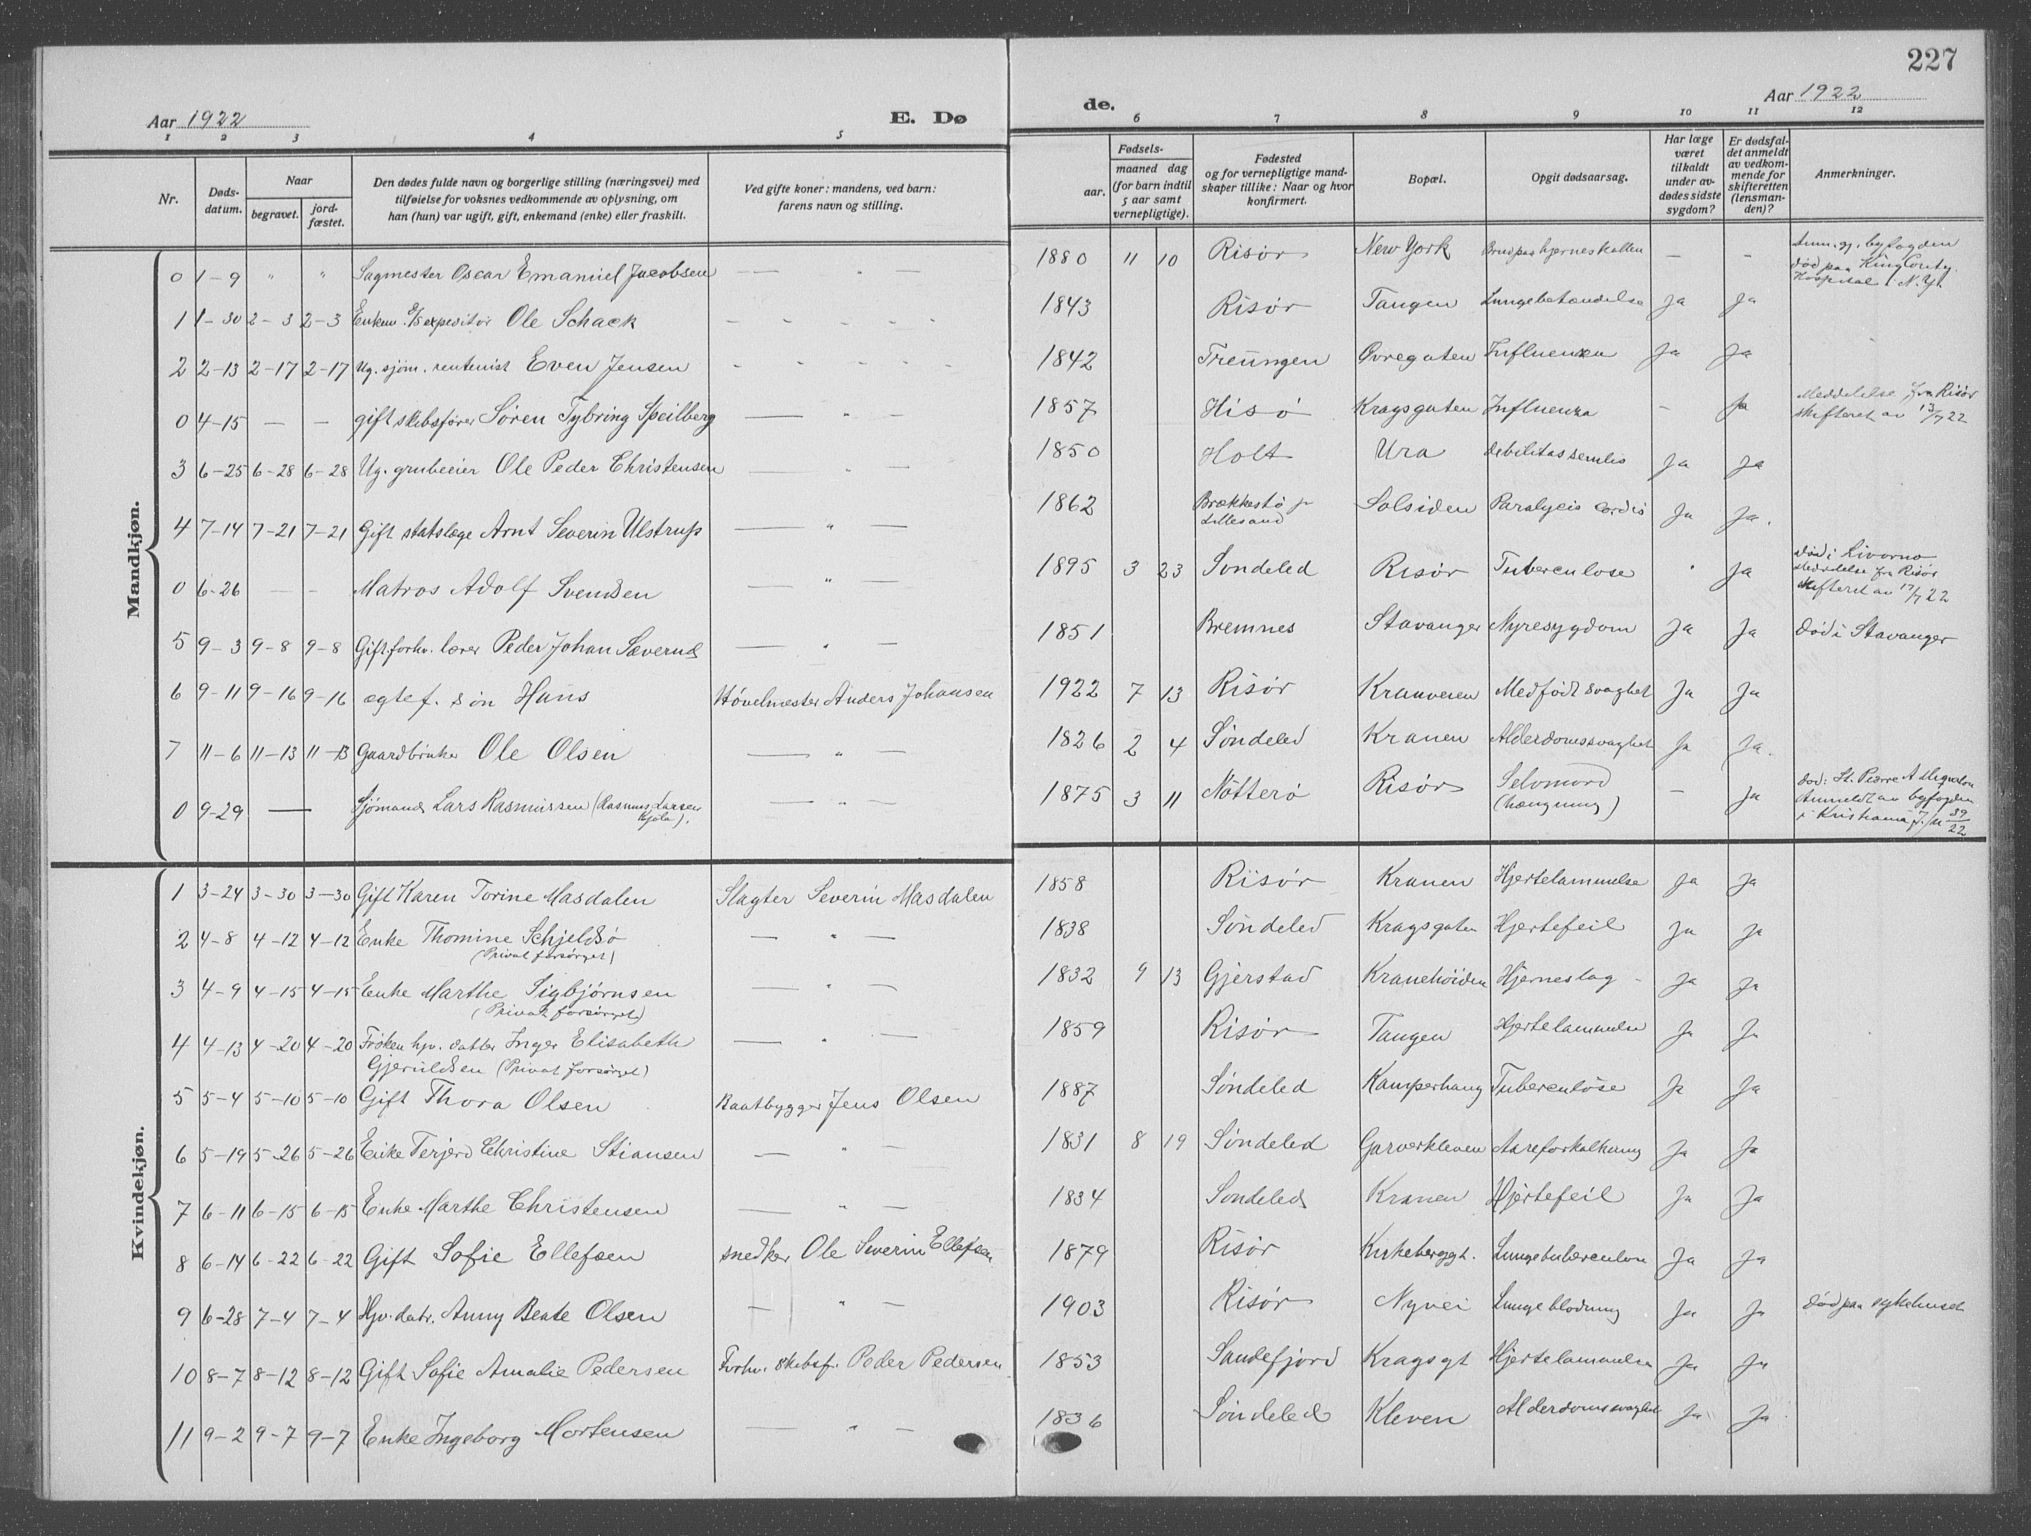 227
Aar 1922
E. Dø
de.
Aar 1922
1 2 3 4 5 6 7 8 9 10 11 12
Nr.
Døds-
datum.
Naar
begravet.
jord-
fæstet.
Den dødes fulde navn og borgerlige stilling (næringsvei) med
tilføielse for voksnes vedkommende av oplysning, om
han (hun) var ugift, gift, enkemand (enke) eller fraskilt.
Ved gifte koner: mandens, ved barn:
farens navn og stilling.
Fødsels-
aar.
maaned dag
(for barn indtil
5 aar samt
vernepligtige).
Fødested
og for vernepligtige mand-
skaper tillike: Naar og hvor
konfirmert.
Bopæl.
Opgit dødsaarsag.
Har læge
været
tilkaldt
under av-
dødes sidste
sygdom?
Er dødsfal-
det anmeldt
av vedkom-
mende for
skifteretten
(lensman-
den)?
Anmerkninger.
Mandkjøn.
0 1-9 " " Sagmester Oscar Emanuel Jacobsen — " — 1880 11 10 Risør New York Brud paa hjerneskallen — - Anm. gj. byfogden
død paa King Conty
Hospital i N.Y.
1 1-30 2-3 2-3 Enkem. D/S expeditør Ole Schack - - - - 1843 Risør Tangen Lungebetændelse Ja Ja
2 2-13 2-17 2-17 Ug. sjøm. rentenist Even Jensen - - - - 1842 Treungen Øvregaten Influenza Ja Ja
0 4-15 — — gift skibsfører Søren Tybring Speilberg — " — 1857 Hisø Kragsgaten Influenza - Ja Meddelelse fra Risør
skifteret av 13/7 22
3 6-25 6-28 6-28 Ug. grubeeier Ole Peder Christensen — " — 1850 Holt Ura debilitas senilis Ja Ja
4 7-14 7-21 7-21 Gift statslæge Arnt Severin Ulstrup — " — 1862 Brækkestø pr
Lillesand Solsiden Paralycis cordis Ja Ja.
0 6-26 — — Matros Adolf Svendsen — " — 1895 3 23 Søndeled Risør Tuberculose " Ja død i Livorno
Meddelelse fra Risør
skifteret av 17/7 22
5 9-3 9-8 9-8 Gift forhv. lærer Peder Johan Sævernes — " — 1851 Bremnes Stavanger Nyresygdom Ja Ja død i Stavanger
6 9-11 9-16 9-16 ægtef. søn Hans Høvelmester Anders Johansen 1922 7 13 Risør Kranveien Medfødt svaghet Ja Ja
7 11-6 11-13 11-13 Gaardbruker Ole Olsen — " — 1826 2 4 Søndeled Kranen Alderdomssvaghet Ja Ja.
0 9-29 — Sjømand Lars Rasmussen (Rasmus Larsen
Kjøla). — " — 1875 3 11 Nøtterø Risør Selvmord
(hængning) — Ja død i St. Pierre
Anmeldt av byfogden
i Kristiania J. № 39/22
Kvindekjøn.
1 3-24 3-30 3-30 Gift Karen Torine Masdalen Slagter Severin Masdalen 1858 Risør Kranen Hjertelammelse Ja Ja
2 4-8 4-12 4-12 Enke Thomine Schjeldsø
(Privat forsørget) — " — 1838 Søndeled Kragsgaten Hjertefeil Ja Ja
3 4-9 4-15 4-15 Enke Marthe Sigbjørnsen
(Privat forsørget) — " — 1832 9 13 Gjerstad Kranehøiden Hjerneslag - Ja Ja
4 4-13 4-20 4-20 Frøken hjv. datter Inger Elisabeth
Gjeruldsen (Privat forsørget) — " — 1859 Risør Tangen Hjertelammelse Ja Ja
5 5-4 5-10 5-10 Gift Thora Olsen Baatbygger Jens Olsen 1887 Søndeled Kamperhaug Tuberculose Ja Ja
6 5-19 5-26 5-26 Enke Terjerd Christine Stiansen — " — 1831 8 19 Søndeled Garverkleven Aareforkalkning Ja Ja
7 6-11 6-15 6-15 Enke Marthe Christensen — " — 1834 Søndeled Kranen Hjertefeil Ja Ja
8 6-14 6-22 6-22 Gift Sofie Ellefsen snedker Ole Severin Ellefsen 1879 Risør Kirkeberggt. Lungetuberculose Ja Ja
9 6-28 7-4 7-4 Hjv. datr. Anny Beate Olsen — " — 1903 Risør Nyvei Lungeblødning Ja Ja død paa sykehuset
10 8-7 8-12 8-12 Gift Sofie Amalie Pedersen Forhv. skibsf. Peder Pedersen 1853 Sandefjord Kragsgt Hjertelammelse Ja Ja
11 9-2 9-7 9-7 Enke Ingeborg Mortensen — " — 1836 Søndeled Kleven Alderdomssvaghet Ja Ja